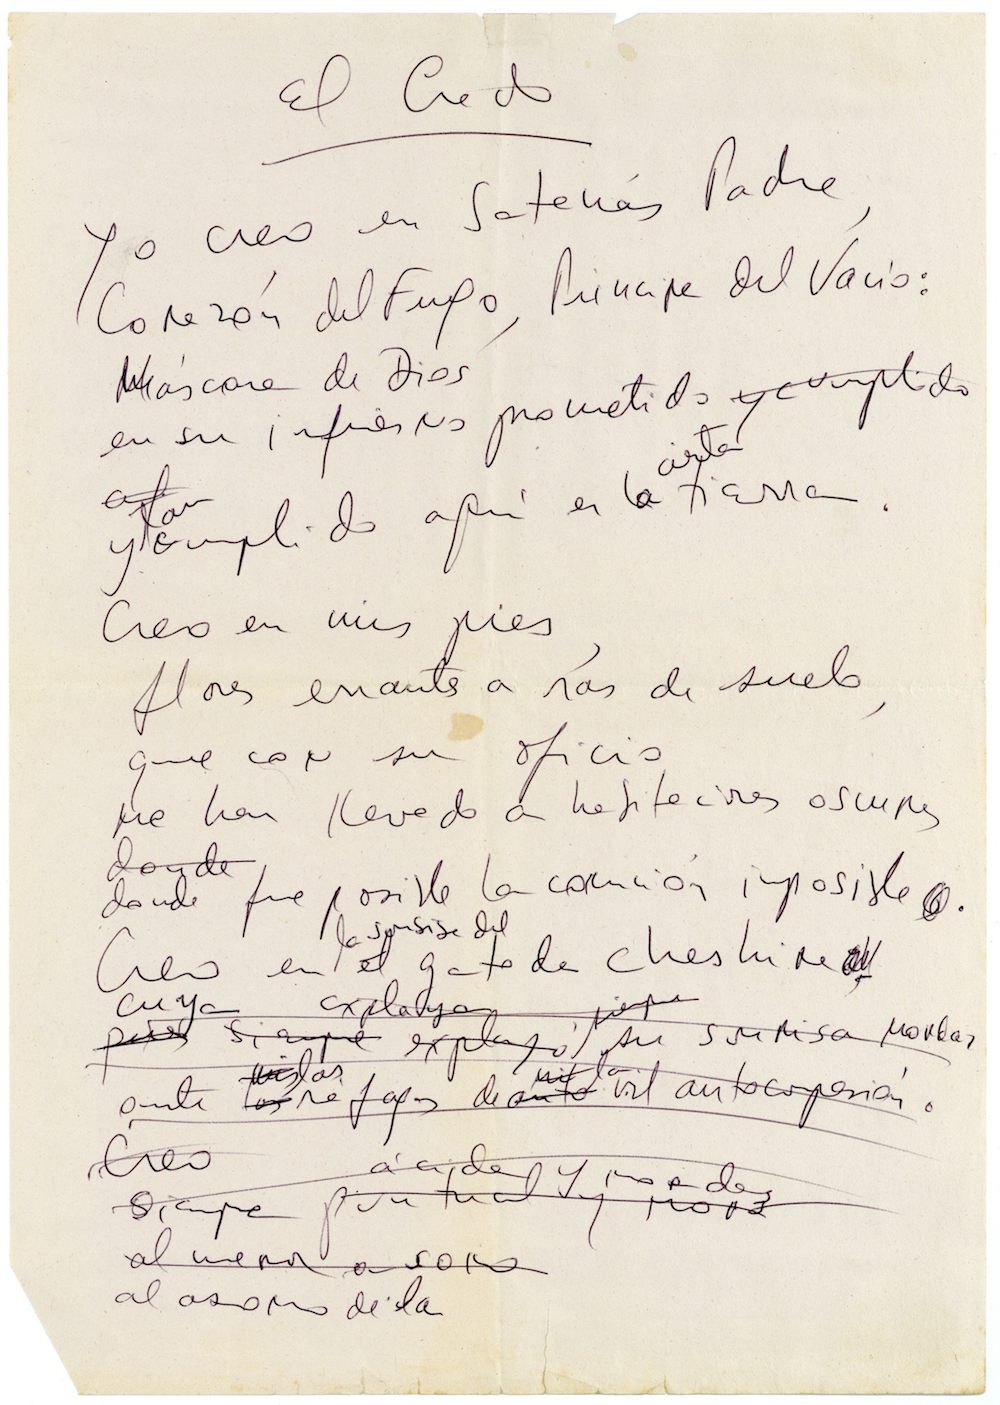 El Credo
Yo creo en Satanás Padre,
Corazón del Fuego, Príncipe del Vacío:
Máscara de Dios
en su infierno prometido y cumplido
tan
cierta
y cumplido aquí en la tierra.
Creo en mis pies,
flores errantes a ras de suelo,
que con su oficio
me han llevado a habitaciones oscuras
donde
donde fue posible la comunión imposible.
la sonrisa del
Creo en el gato de Cheshire
cuya explaya siempre
siempre explayó su sonrisa mordaz
mis las
ante las ráfagas de vil autocompasión.
Creo ácida y mordaz
siempre puntual y
al menor asomo
al asomo de la